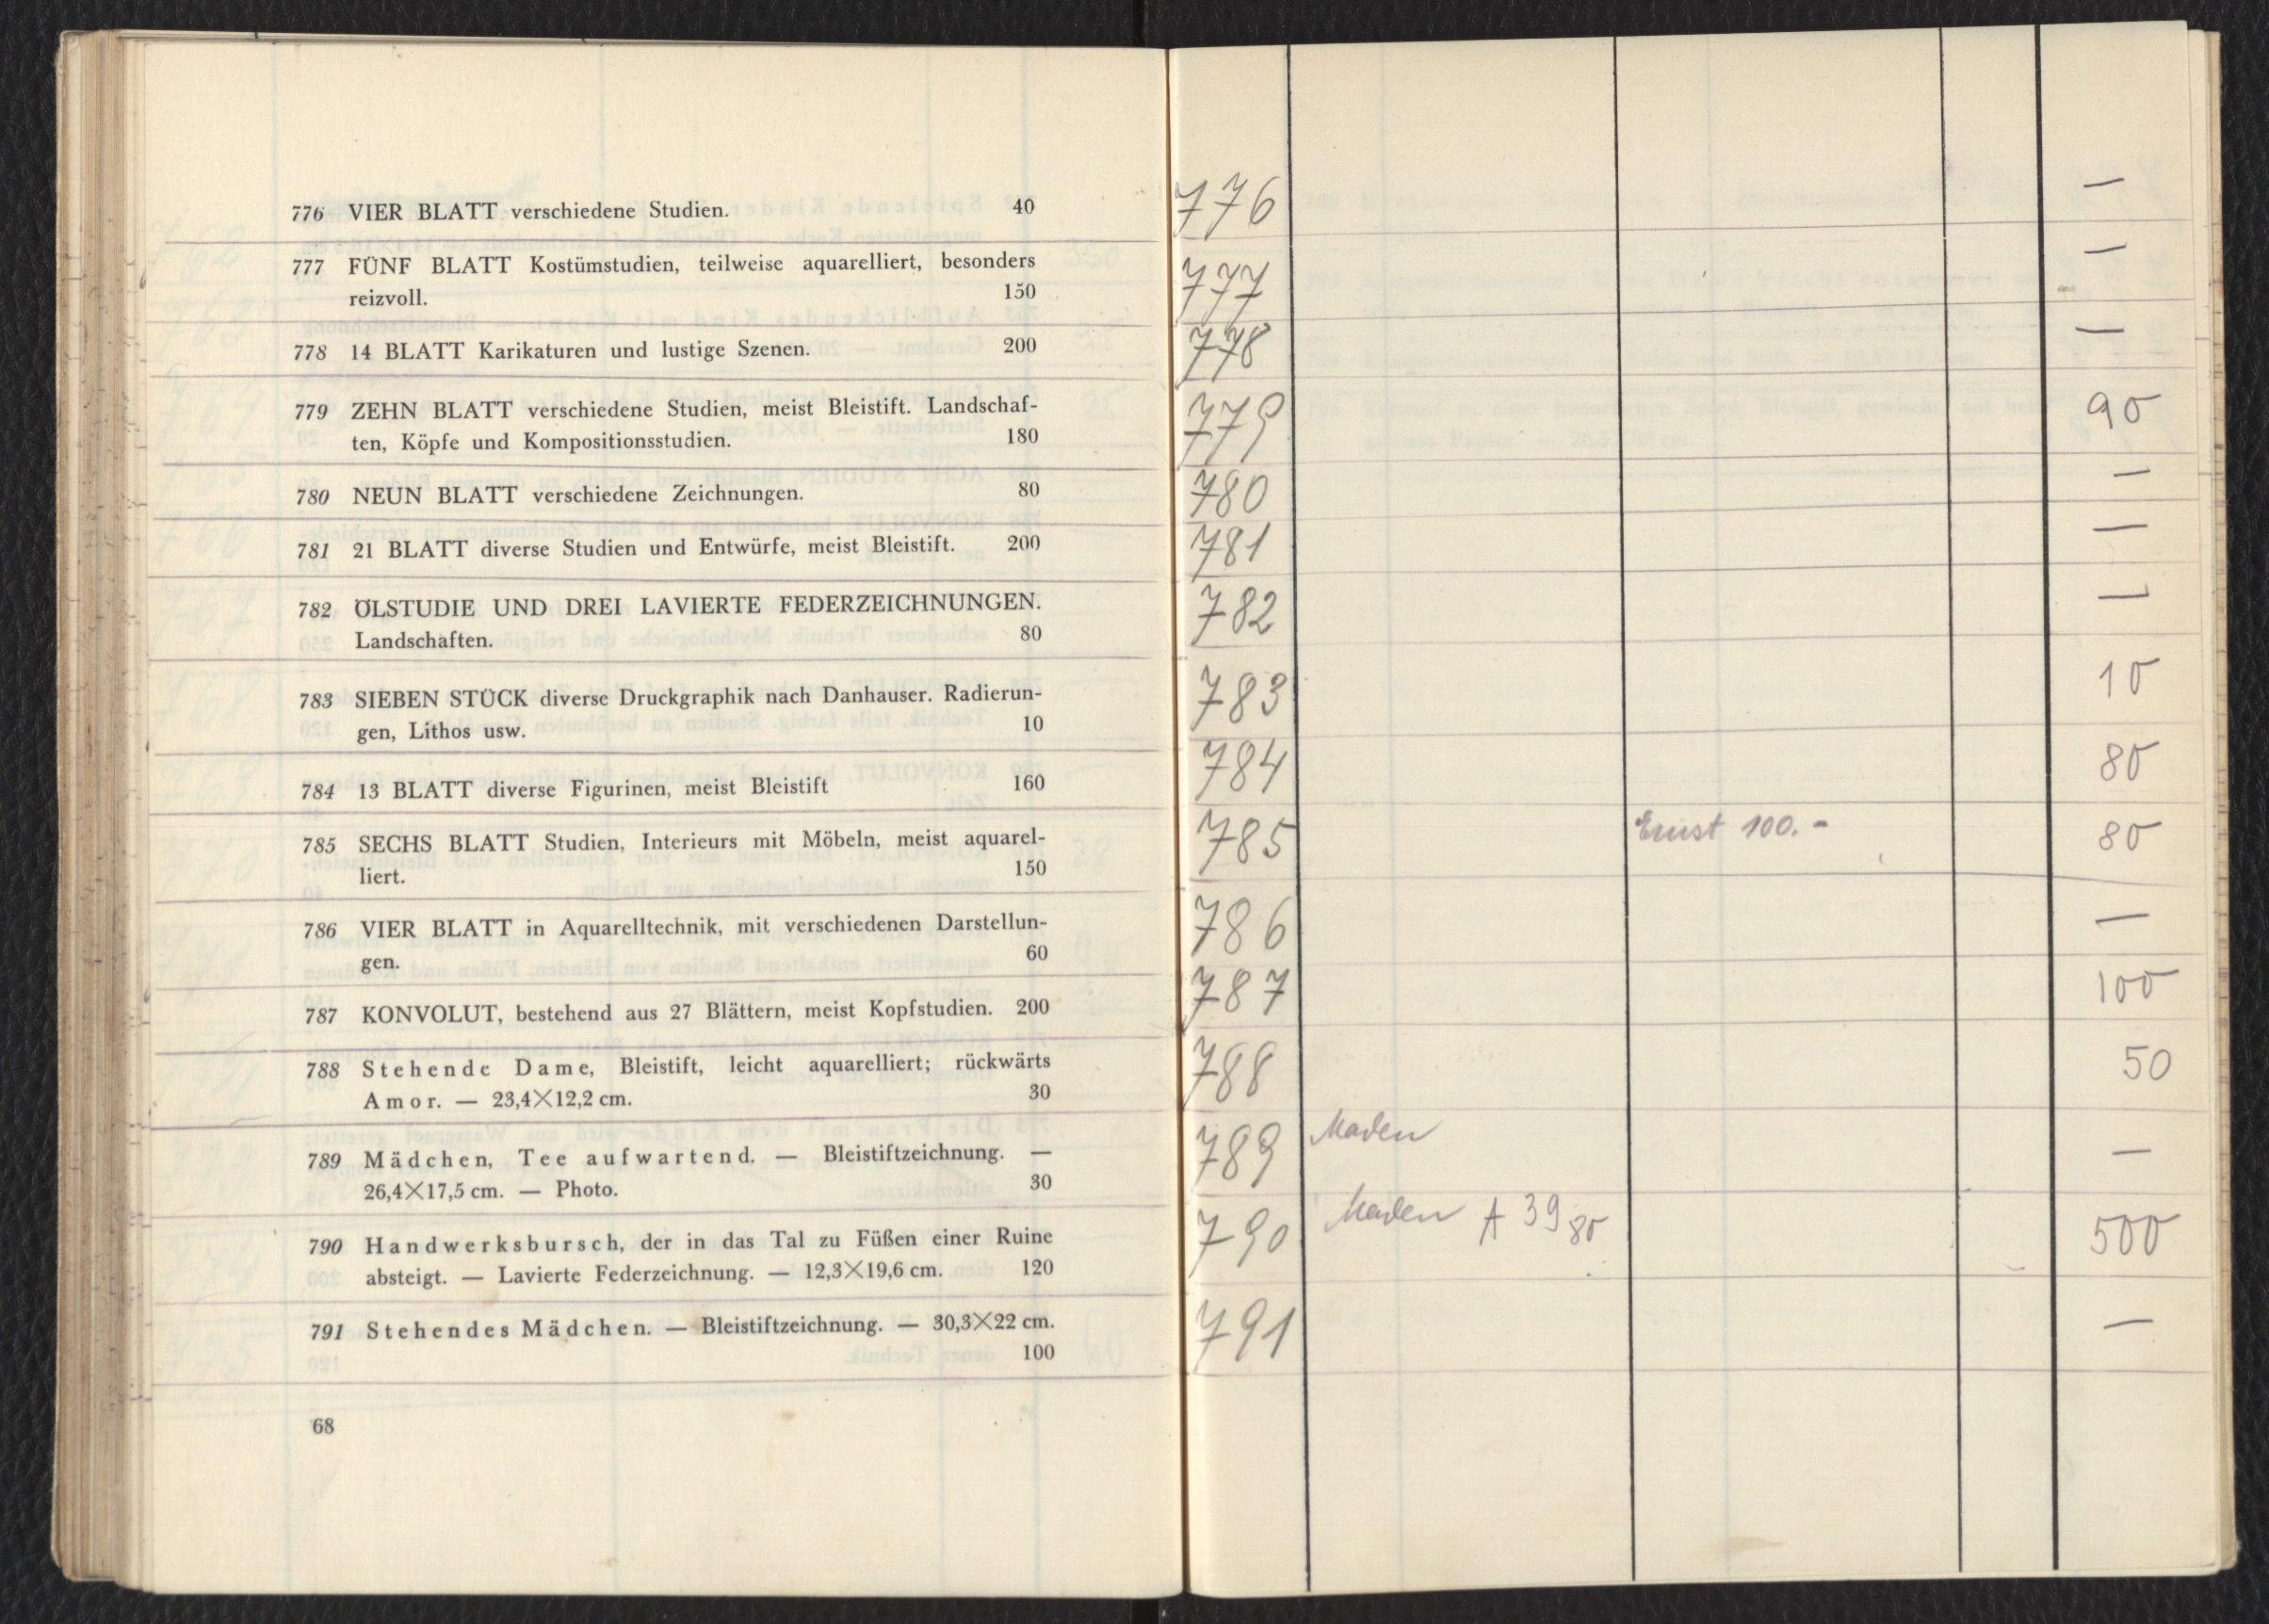 776 VIER BLATT verschiedene Studien. 40
777 FÜNF BLATT Kostümstudien, teilweise aquarelliert, besonders
reizvoll. 150
778 14 BLATT Karikaturen und lustige Szenen. 200
779 ZEHN BLATT verschiedene Studien, meist Bleistift. Landschaf-
ten, Köpfe und Kompositionsstudien. 180
780 NEUN BLATT verschiedene Zeichnungen. 80
781 21 BLATT diverse Studien und Entwürfe, meist Bleistift. 200
782 ÖLSTUDIE UND DREI LAVIERTE FEDERZEICHNUNGEN.
Landschaften. 80
783 SIEBEN STÜCK diverse Druckgraphik nach Danhauser. Radierun-
gen, Lithos usw. 10
784 13 BLATT diverse Figurinen, meist Bleistift 160
785 SECHS BLATT Studien, Interieurs mit Möbeln, meist aquarel-
liert. 150
786 VIER BLATT in Aquarelltechnik, mit verschiedenen Darstellun-
gen. 60
787 KONVOLUT, bestehend aus 27 Blättern, meist Kopfstudien. 200
788 Stehende Dame, Bleistift, leicht aquarelliert; rückwärts
Amor. — 23,4×12,2 cm. 30
789 Mädchen, Tee aufwartend. — Bleistiftzeichnung. —
26,4×17,5 cm. — Photo. 30
790 Handwerksbursch, der in das Tal zu Füßen einer Ruine
absteigt. — Lavierte Federzeichnung. — 12,3×19,6 cm. 120
791 Stehendes Mädchen. — Bleistiftzeichnung. — 30,3×22 cm.
100
68
776 —
777 —
778 —
779 90
780 —
781 —
782 —
783 10
784 80
785 Ernst 100.- 80
786 —
787 100
788 50
789 —
790 39 80 500
791 —